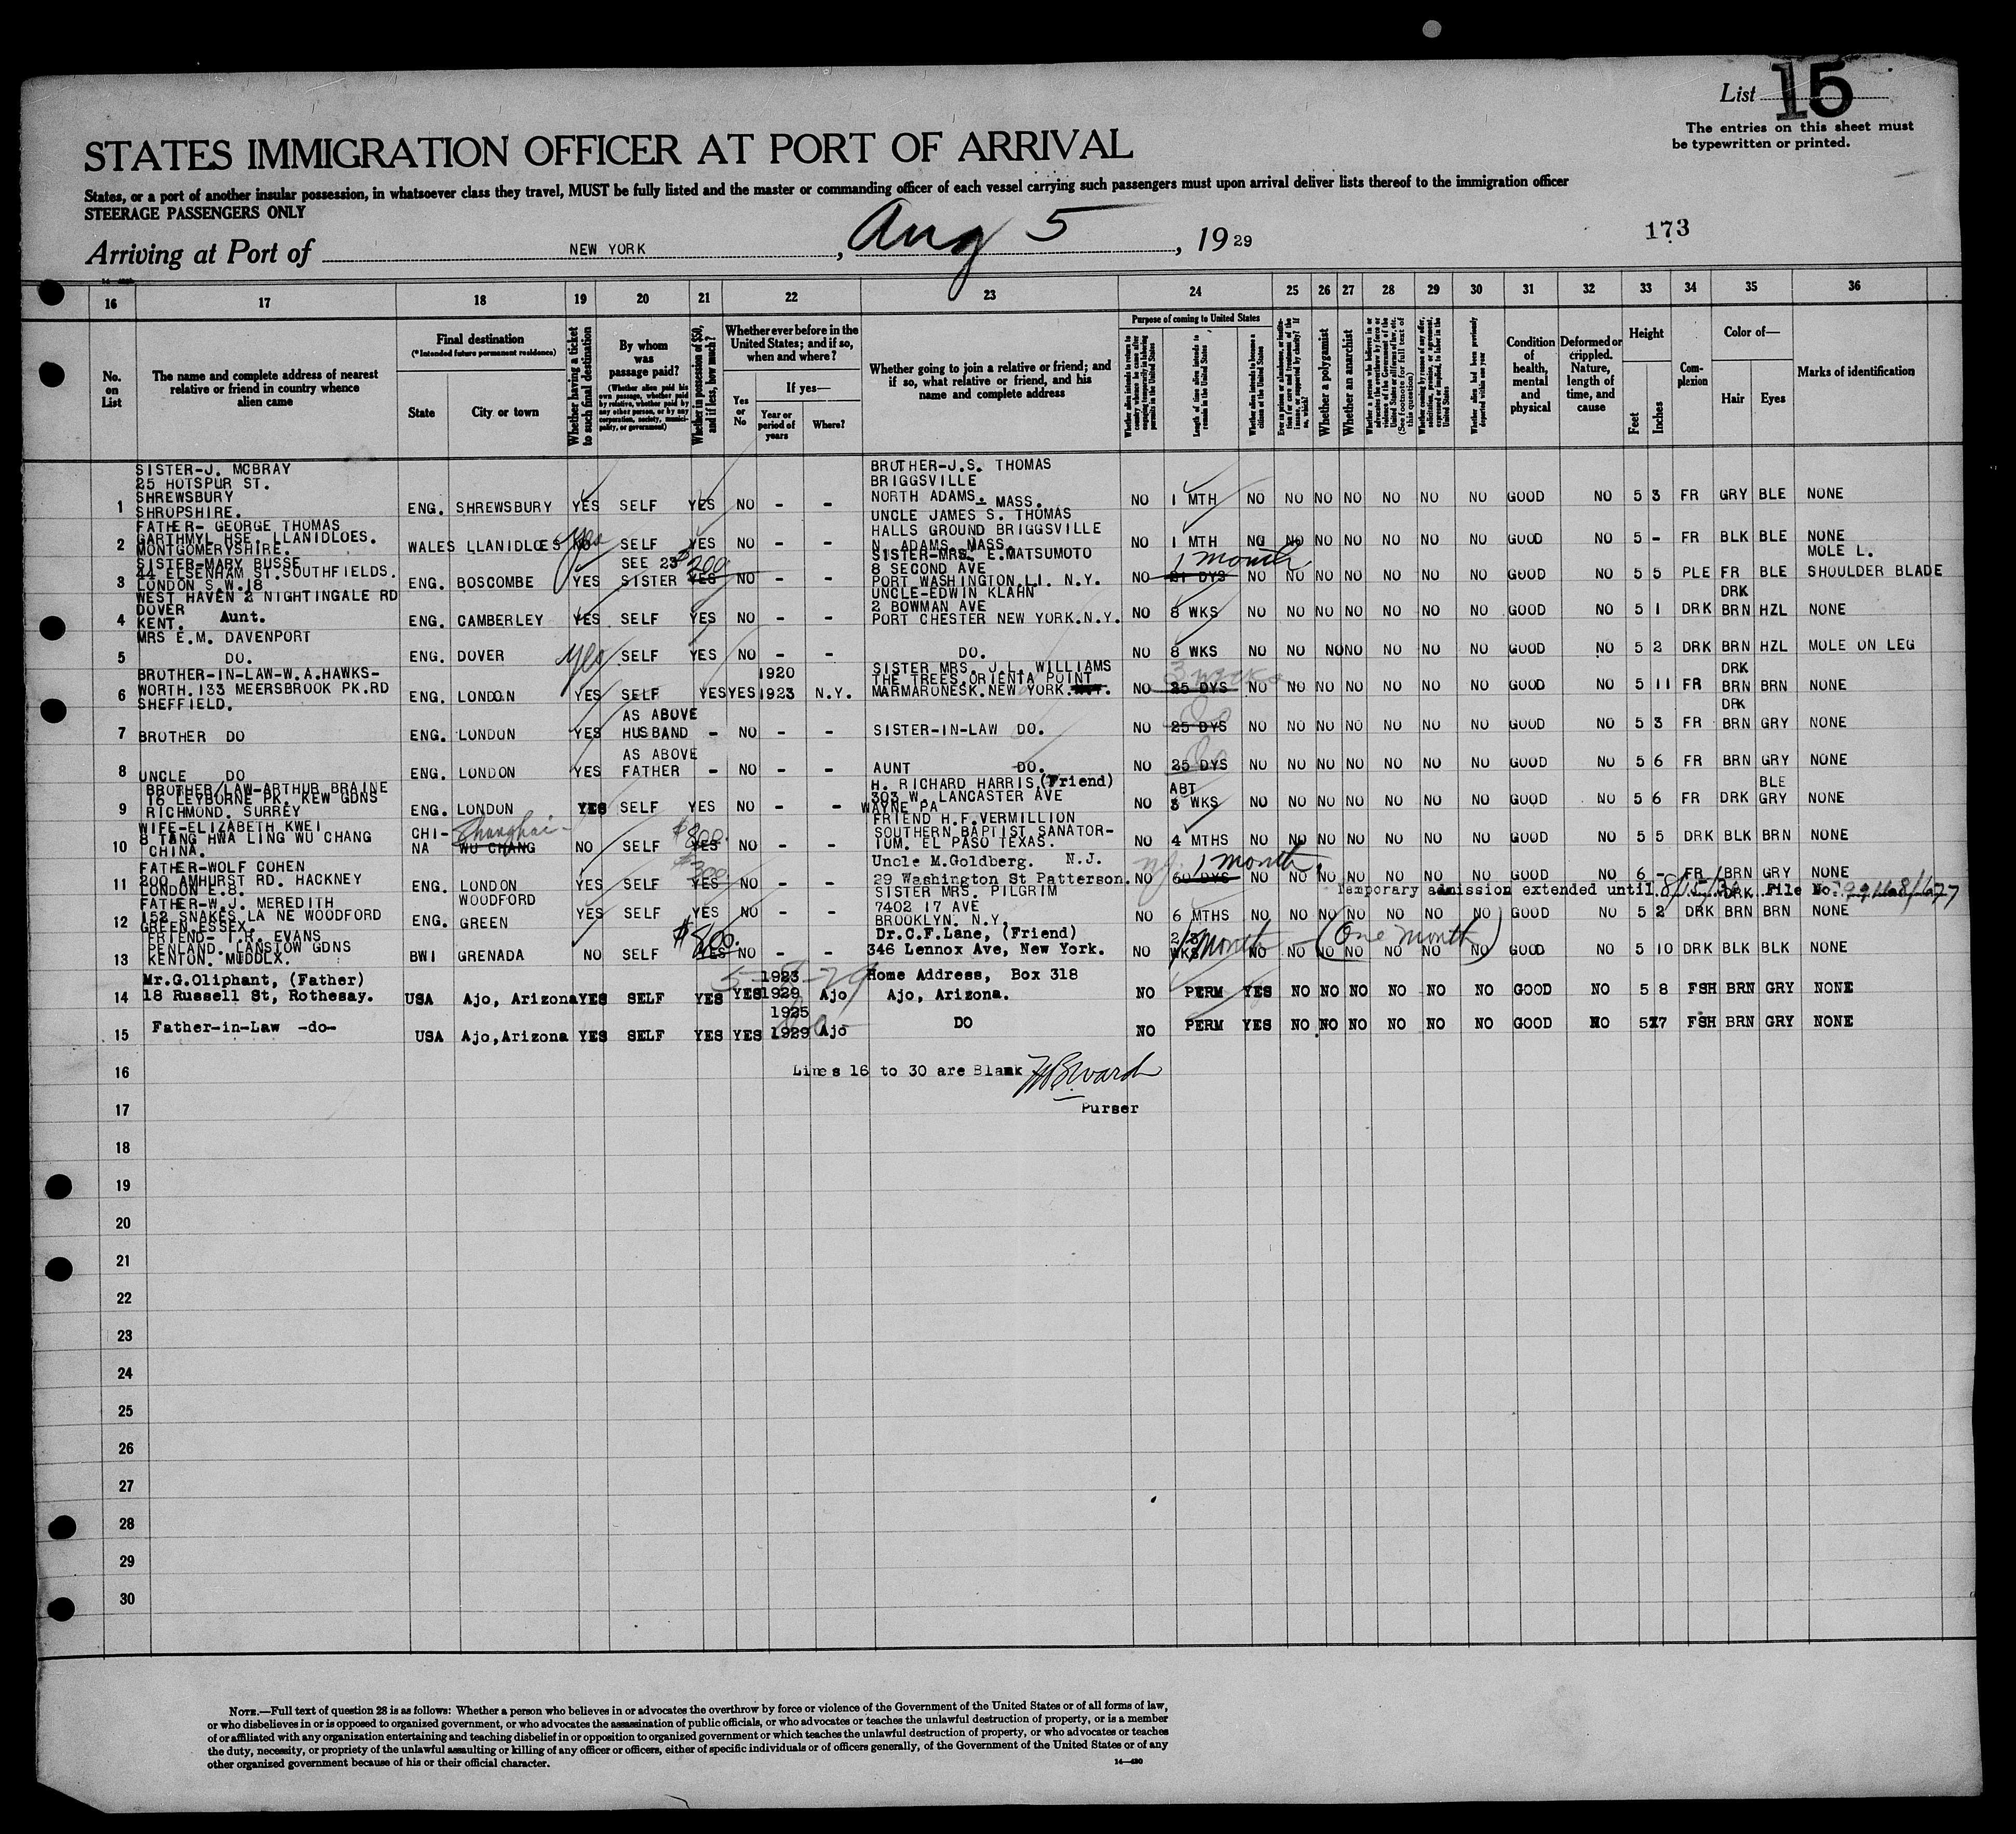 List 15
The entries on this sheet must
be typewritten or printed.
STATES IMMIGRATION OFFICER AT PORT OF ARRIVAL
States, or a port of another insular possession, in whatsoever class they travel, MUST be fully listed and the master or commanding officer of each vessel carrying such passengers must upon arrival deliver lists thereof to the immigration officer
STEERAGE PASSENGERS ONLY
Arriving at Port of NEW YORK, Aug 5, 19 29
173
16 17 18 19 20 21 22 23 24 25 26 27 28 29 30 31 32 33 34 35 36
No. on List
The name and complete address of nearest relative or friend in country whence alien came
Final destination
(*Intended future permanent residence)
State
City or town
Whether having a ticket to such final destination
By whom was passage paid?
(Whether alien paid his own passage, whether paid by relative, whether paid by any other person, or by any corporation, society, municipality, or government)
Whether in possession of $50, and if less, how much?
Whether ever before in the United States; and if so, when and where?
Yes or No
If yes—
Year or period of years
Where?
Whether going to join a relative or friend; and if so, what relative or friend, and his name and complete address
Purpose of coming to United States
Length of time alien intends to remain in the United States
Whether alien intends to become a citizen of the United States
Whether a polygamist
Whether an anarchist
Condition of health, mental and physical
Deformed or crippled. Nature, length of time, and cause
Height
Feet
Inches
Complexion
Color of—
Hair
Eyes
Marks of identification
SISTER-J. MCBRAY
25 HOTSPUR ST.
SHREWSBURY
SHROPSHIRE.
BROTHER-J.S. THOMAS
BRIGGSVILLE
NORTH ADAMS. MASS.
1 ENG. SHREWSBURY YES SELF YES NO - - NO 1 MTH NO NO NO NO NO NO NO GOOD NO 5 3 FR GRY BLE NONE
FATHER- GEORGE THOMAS
GARTHMYL HSE. LLANIDLOES.
MONTGOMERYSHIRE.
UNCLE JAMES S. THOMAS
HALLS GROUND BRIGGSVILLE
N. ADAMS. MASS.
2 WALES LLANIDLOES NO yes SELF YES NO - - NO 1 MTH NO NO NO NO NO NO NO GOOD NO 5 - FR BLK BLE NONE
SISTER-MARY BUSSE
44 ELSENHAM ST. SOUTHFIELDS.
LONDON S.W.18
SISTER-MRS. E. MATSUMOTO
8 SECOND AVE
PORT WASHINGTON L.I. N.Y.
3 ENG. BOSCOMBE YES SEE 23 SISTER $200 YES NO - - NO 21 DYS 1 month NO NO NO NO NO NO NO GOOD NO 5 5 PLE FR BLE MOLE L. SHOULDER BLADE
WEST HAVEN 2 NIGHTINGALE RD
DOVER
KENT. Aunt.
MRS E.M. DAVENPORT
UNCLE-EDWIN KLAHN
2 BOWMAN AVE
PORT CHESTER NEW YORK.N.Y.
4 ENG. CAMBERLEY YES SELF YES NO - - NO 8 WKS NO NO NO NO NO NO NO GOOD NO 5 1 DRK DRK BRN HZL NONE
5 DO. ENG. DOVER yes SELF YES NO - - DO. NO 8 WKS NO NO NO NO NO NO NO GOOD NO 5 2 DRK BRN HZL MOLE ON LEG
BROTHER-IN-LAW-W.A.HAWKS-
WORTH.133 MEERSBROOK PK.RD
SHEFFIELD.
SISTER MRS. J.L. WILLIAMS
THE TREES.ORIENTA POINT
MARMARONESK.NEW YORK.
6 ENG. LONDON YES SELF YES YES 1920 1923 N.Y. NO 25 DYS 3 weeks NO NO NO NO NO NO NO GOOD NO 5 11 FR DRK BRN BRN NONE
7 BROTHER DO ENG. LONDON YES AS ABOVE HUSBAND - NO - - SISTER-IN-LAW DO. NO 25 DYS Do NO NO NO NO NO NO NO GOOD NO 5 3 FR DRK BRN GRY NONE
8 UNCLE DO ENG. LONDON YES AS ABOVE FATHER - NO - - AUNT DO. NO 25 DYS Do NO NO NO NO NO NO NO GOOD NO 5 6 FR BRN GRY NONE
BROTHER/LAW-ARTHUR BRAINE
16 LEYBURNE PK. KEW GDNS
RICHMOND. SURREY
H. RICHARD HARRIS (Friend)
303 W. LANCASTER AVE
WAYNE PA
9 ENG. LONDON YES SELF YES NO - - NO ABT 3 WKS NO NO NO NO NO NO NO GOOD NO 5 6 FR DRK BLE GRY NONE
WIFE-ELIZABETH KWEI
8 TANG HWA LING WU CHANG
CHINA.
FRIEND H.F.VERMILLION
SOUTHERN BAPTIST SANATOR-
IUM. EL PASO TEXAS.
10 CHI-NA WU CHANG Shanghai NO SELF $800. YES NO - - NO 4 MTHS NO NO NO NO NO NO NO GOOD NO 5 5 DRK BLK BRN NONE
FATHER-WOLF COHEN
200 AMHURST RD. HACKNEY
LONDON E.8.
Uncle M.Goldberg. N.J.
29 Washington St Patterson.
11 ENG. LONDON YES SELF $300. YES NO - - NO 60 DYS 1 month NO NO NO NO NO NO NO GOOD NO 6 - FR BRN GRY NONE
Temporary admission extended until 8/15/30 File No. 99168/677
FATHER-W.J. MEREDITH
152 SNAKES LA NE WOODFORD
GREEN.ESSEX.
SISTER MRS. PILGRIM
7402 17 AVE
BROOKLYN. N.Y.
12 ENG. WOODFORD GREEN YES SELF YES NO - - NO 6 MTHS NO NO NO NO NO NO NO GOOD NO 5 2 DRK DRK BRN BRN NONE
FRIEND- T.R. EVANS
PENLAND. LANSTOW GDNS
KENTON. MUDDLX.
Dr.C.F.Lane, (Friend)
346 Lennox Ave, New York.
13 BWI GRENADA NO SELF $800. YES NO - - NO 2/3 WKS 1 month NO NO NO NO (One month) NO NO NO GOOD NO 5 10 DRK BLK BLK NONE
Mr.G.Oliphant, (Father)
18 Russell St, Rothesay.
Home Address, Box 318
Ajo, Arizona.
14 USA Ajo, Arizona YES SELF YES YES 1923 1929 Ajo NO PERM YES NO NO NO NO NO NO GOOD NO 5 8 FSH BRN GRY NONE
15 Father-in-Law -do- USA Ajo,Arizona YES SELF YES YES 1925 1929 Ajo DO NO PERM YES NO NO NO NO NO NO GOOD NO 5 7 FSH BRN GRY NONE
16 Lines 16 to 30 are Blank
17 Purser
18
19
20
21
22
23
24
25
26
27
28
29
30
NOTE.—Full text of question 28 is as follows: Whether a person who believes in or advocates the overthrow by force or violence of the Government of the United States or of all forms of law,
or who disbelieves in or is opposed to organized government, or who advocates the assassination of public officials, or who advocates or teaches the unlawful destruction of property, or is a member
of or affiliated with any organization entertaining and teaching disbelief in or opposition to organized government or which teaches the unlawful destruction of property, or who advocates or teaches
the duty, necessity, or propriety of the unlawful assaulting or killing of any officer or officers, either of specific individuals or of officers generally, of the Government of the United States or of any
other organized government because of his or their official character.
14—430